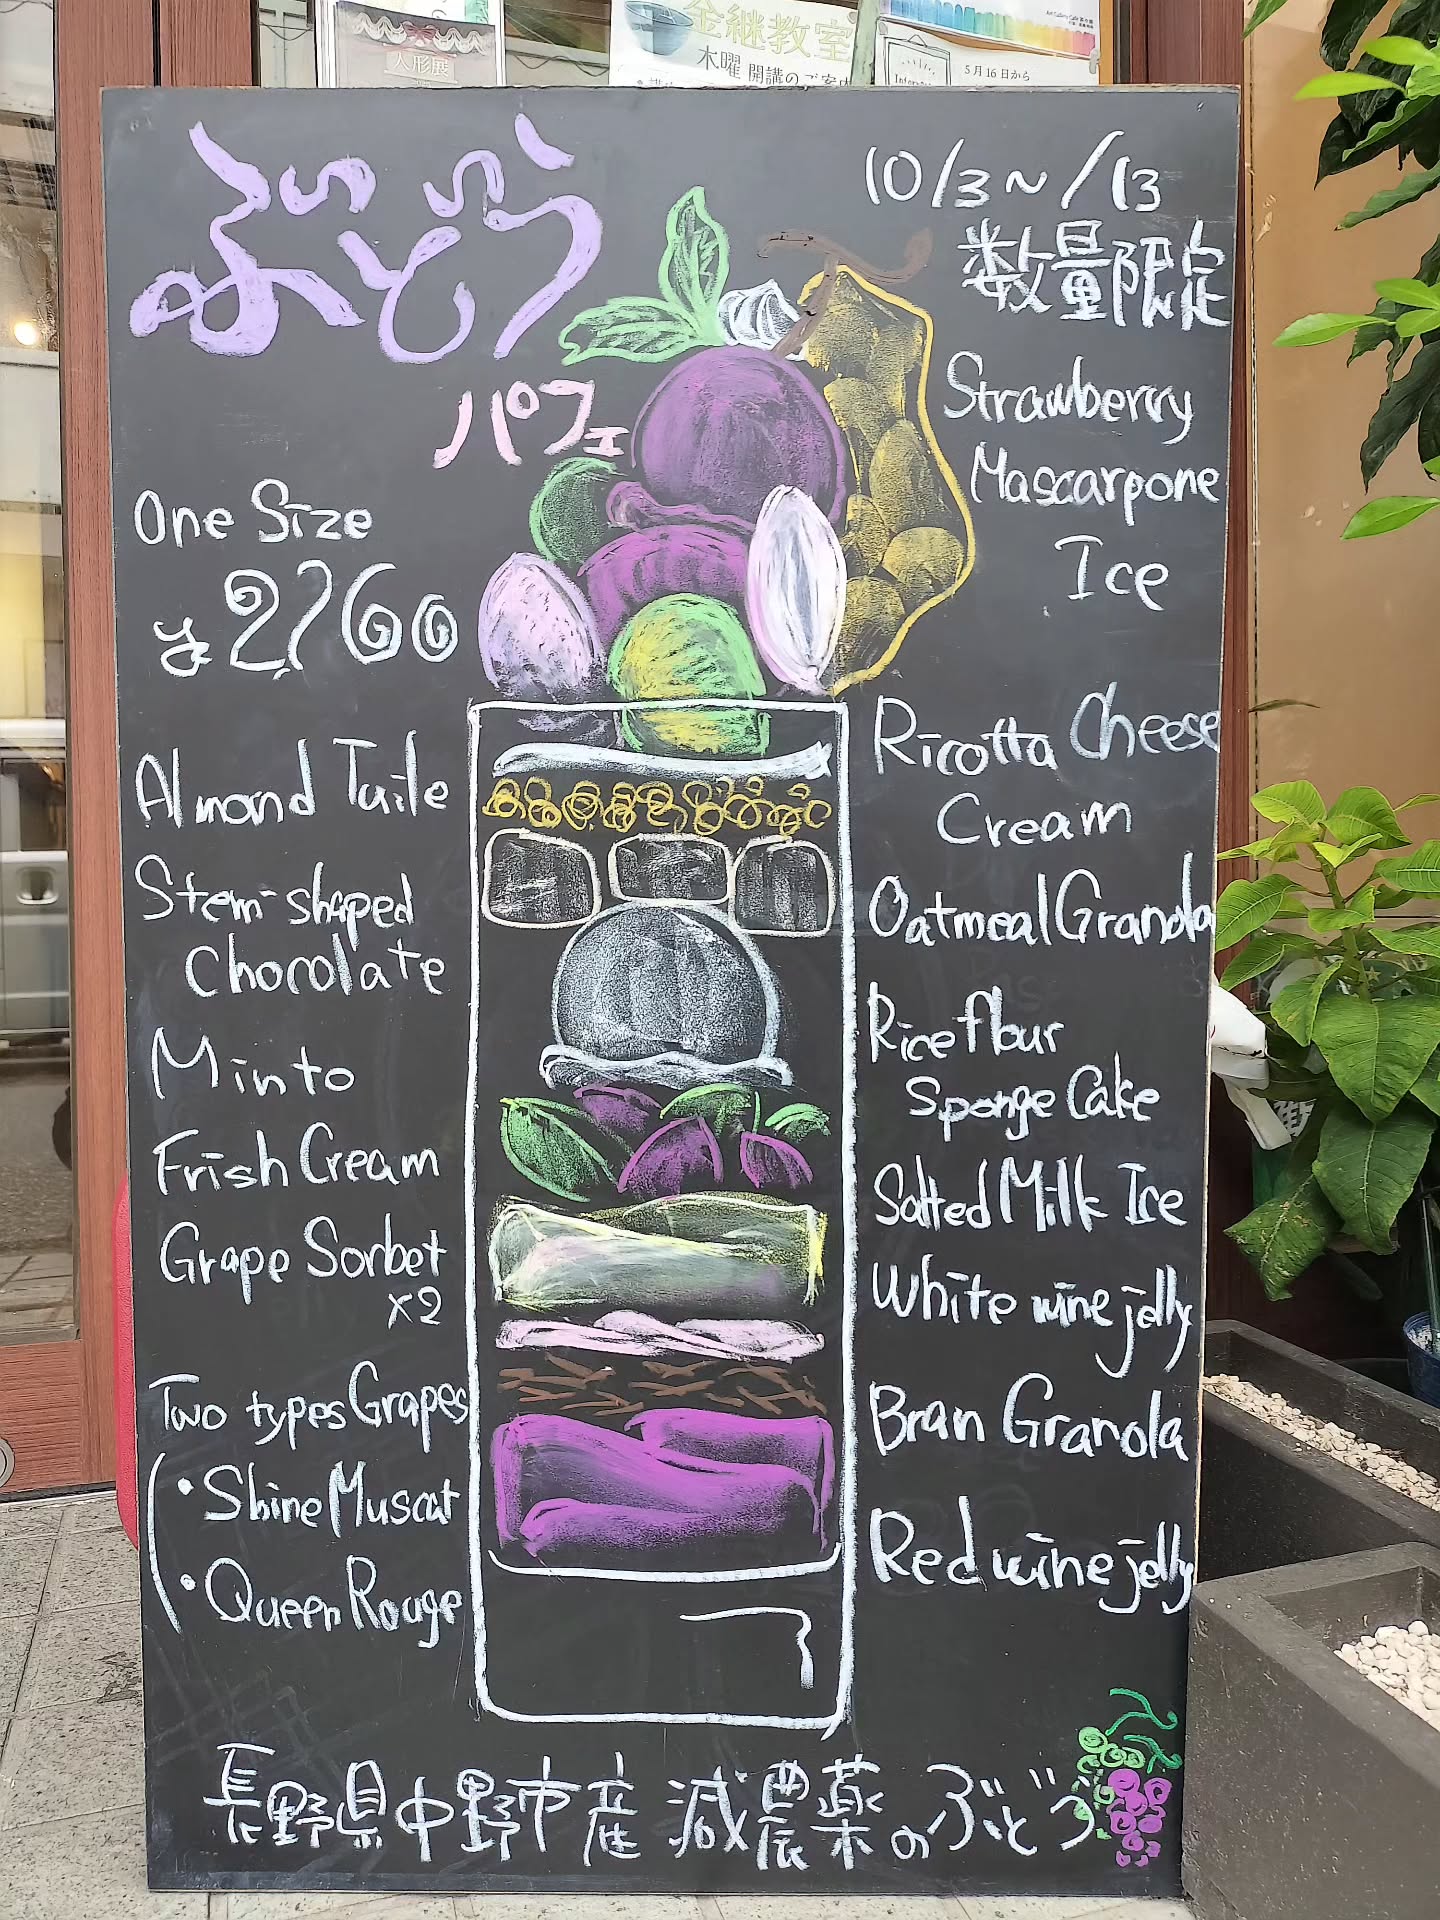 人形展
金継教室
木曜 開講のご案内
5月16日から
ぶどう
パフェ
10/3~/13
数量限定
One Size
¥2760
Almond Tuile
Stem-shaped
Chocolate
Minto
Frish Cream
Grape Sorbet
×2
Two types Grapes
・Shine Muscat
・Queen Rouge
Strawberry
Mascarpone
Ice
Ricotta Cheese
Cream
Oatmeal Granola
Rice flour
Sponge Cake
Salted Milk Ice
White wine jelly
Bran Granola
Red wine jelly
長野県中野市産 減農薬のぶどう